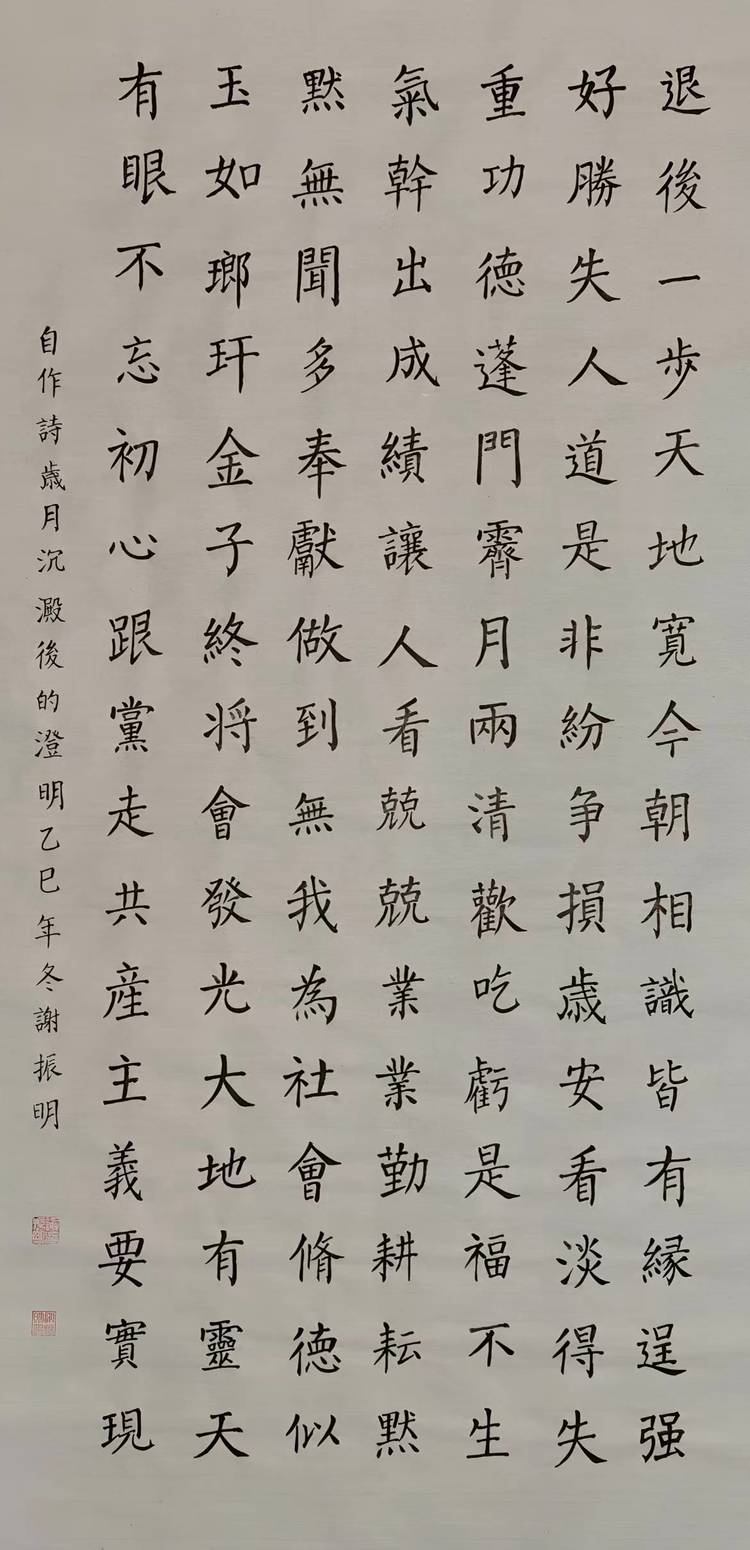 退後一步天地寬今朝相識皆有緣逞强
好勝失人道是非紛争損歳安看淡得失
重功德蓬門霽月兩清歡吃虧是福不生
氣幹出成績讓人看兢兢業業勤耕耘默
默無聞多奉獻做到無我為社會脩德似
玉如瑯玕金子終将會發光大地有靈天
有眼不忘初心跟黨走共産主義要實現
自作詩歳月沉澱後的澄明乙巳年冬謝振明